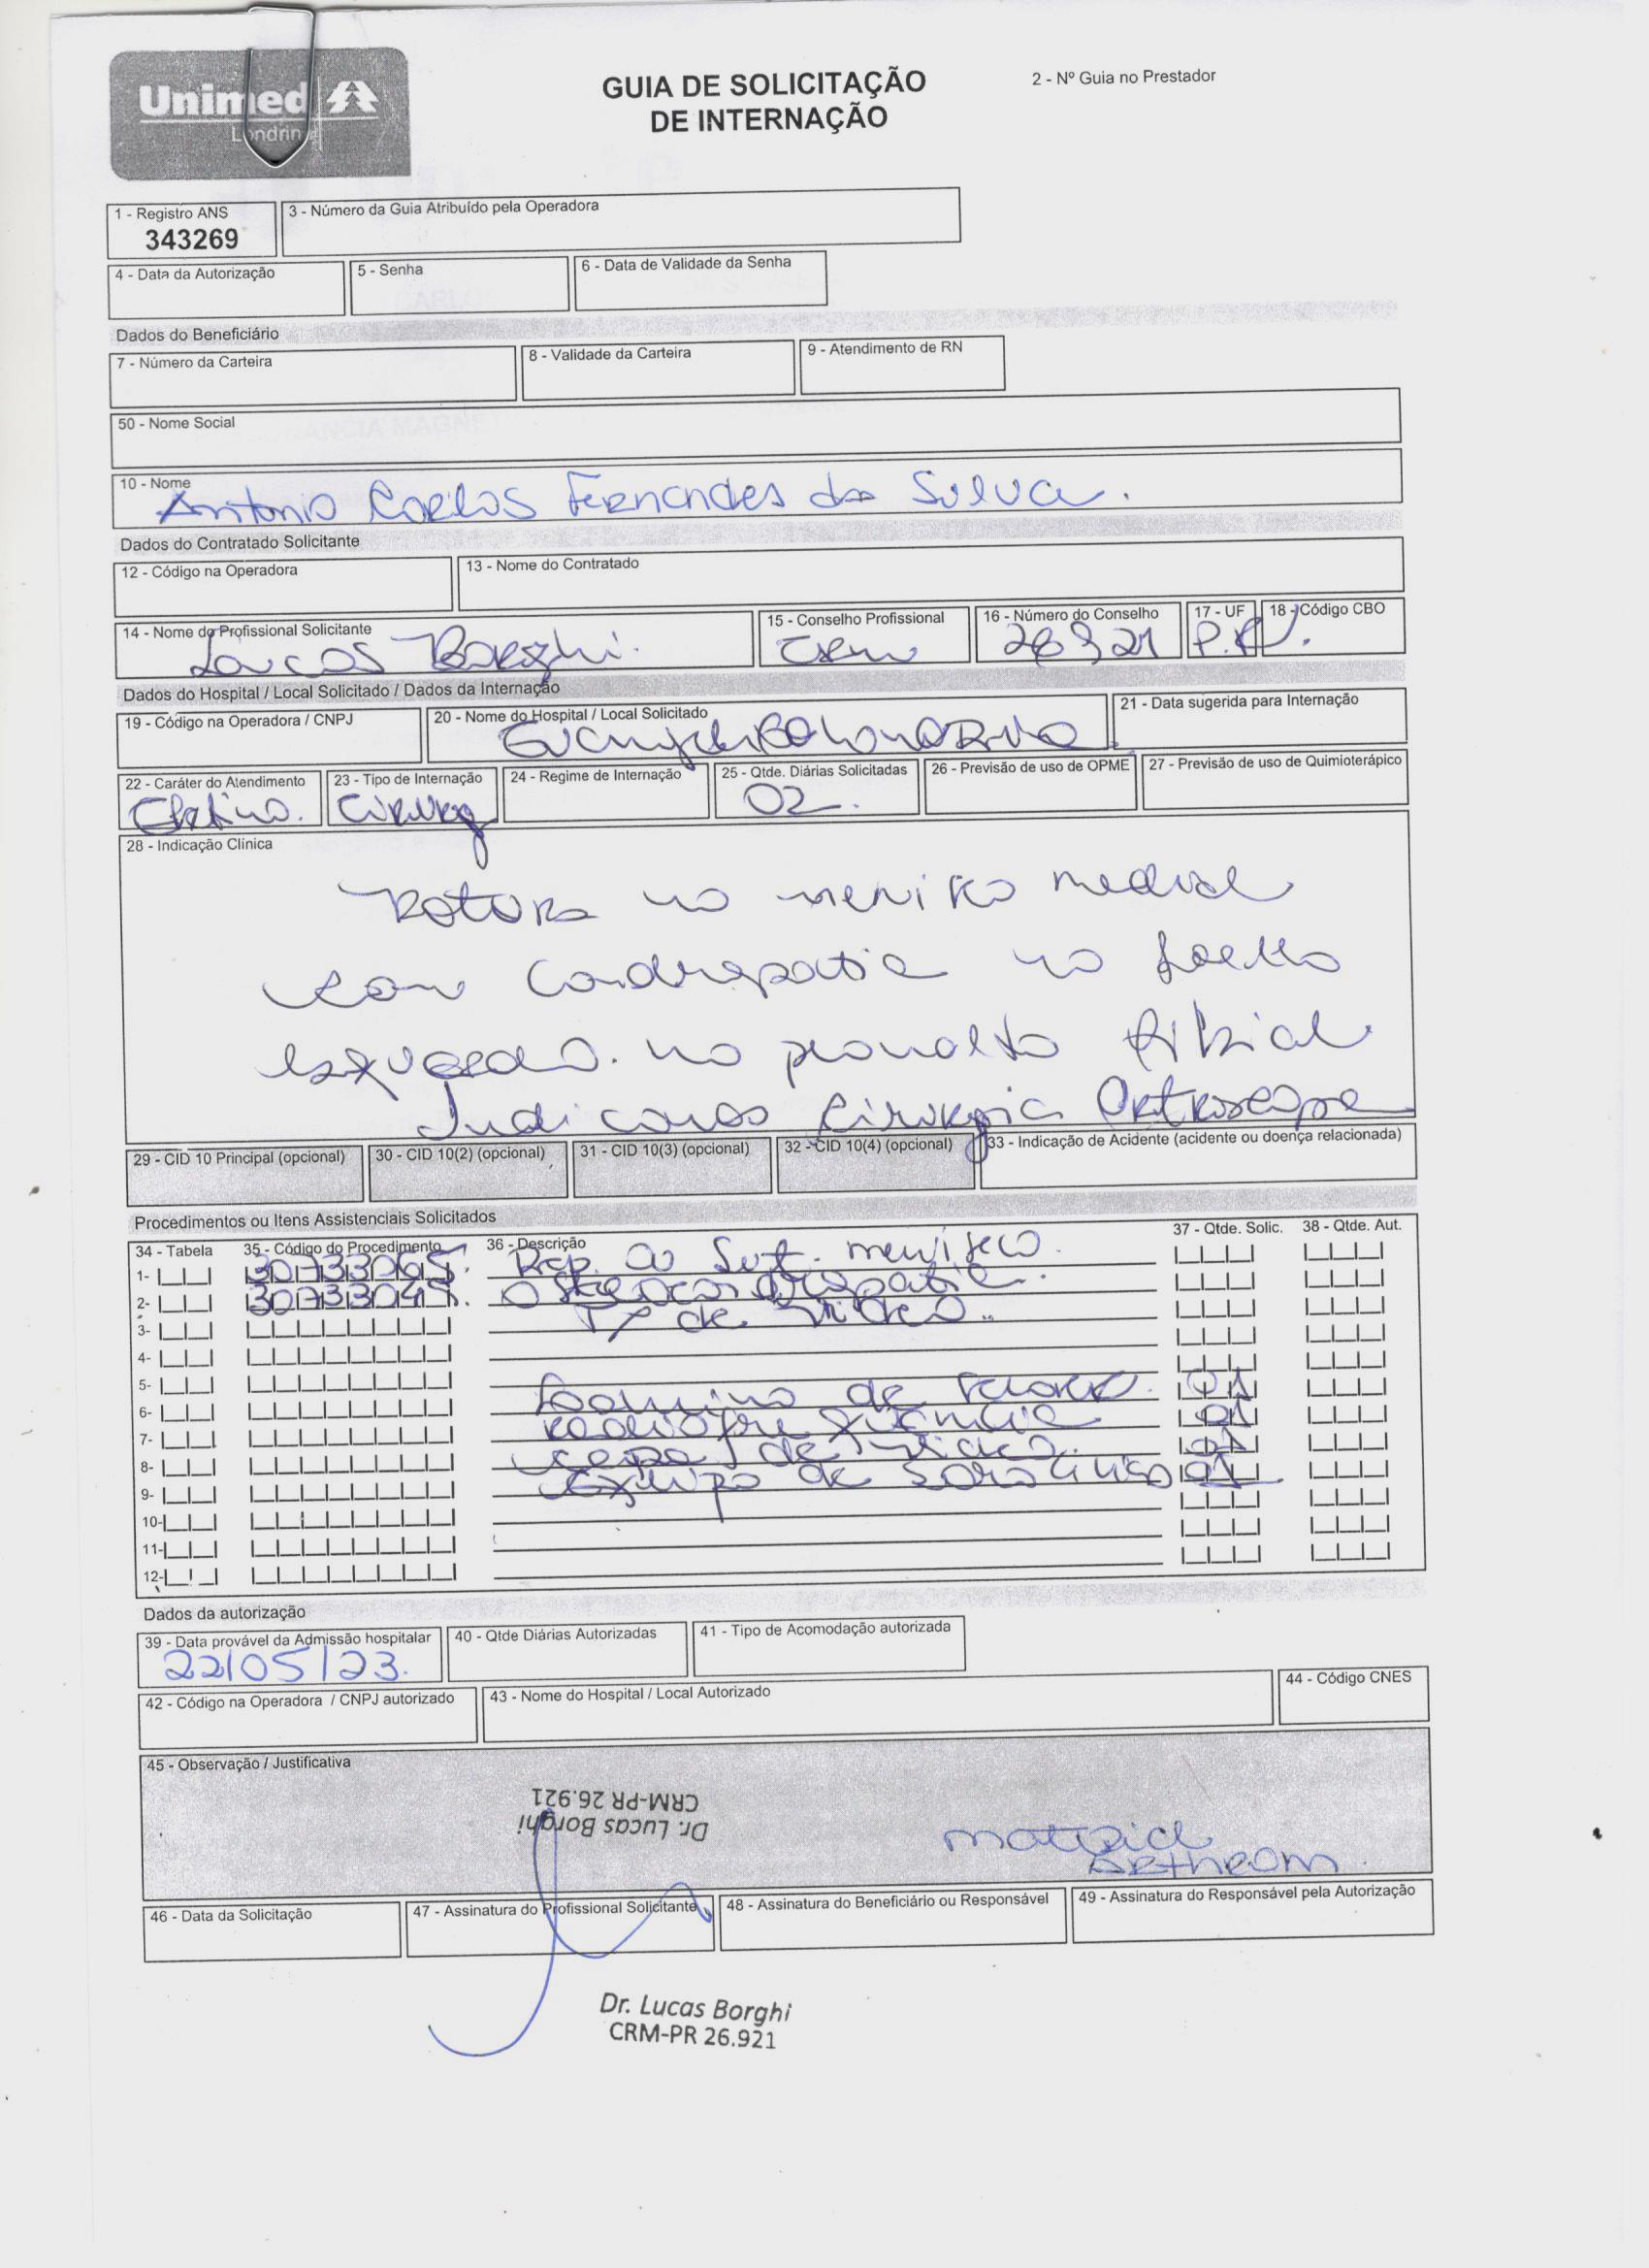 Unimed
Londrina
GUIA DE SOLICITAÇÃO
DE INTERNAÇÃO
2 - Nº Guia no Prestador
1 - Registro ANS
343269
3 - Número da Guia Atribuído pela Operadora
4 - Data da Autorização
5 - Senha
6 - Data de Validade da Senha
Dados do Beneficiário
7 - Número da Carteira
8 - Validade da Carteira
9 - Atendimento de RN
50 - Nome Social
10 - Nome
Antonio Carlos Fernandes da Silva.
Dados do Contratado Solicitante
12 - Código na Operadora
13 - Nome do Contratado
14 - Nome do Profissional Solicitante
Lucas Borghi.
15 - Conselho Profissional
CRM
16 - Número do Conselho
26921
17 - UF
P.R.
18 - Código CBO
Dados do Hospital / Local Solicitado / Dados da Internação
19 - Código na Operadora / CNPJ
20 - Nome do Hospital / Local Solicitado
21 - Data sugerida para Internação
22 - Caráter do Atendimento
Eletivo.
23 - Tipo de Internação
Cirurg
24 - Regime de Internação
25 - Qtde. Diárias Solicitadas
02.
26 - Previsão de uso de OPME
27 - Previsão de uso de Quimioterápico
28 - Indicação Clínica
Rotura no menisco medial
com Condropatia no Joelho
esquerdo. no planalto tibial
Indicamos Cirurgia Artroscopia
29 - CID 10 Principal (opcional)
30 - CID 10(2) (opcional)
31 - CID 10(3) (opcional)
32 - CID 10(4) (opcional)
33 - Indicação de Acidente (acidente ou doença relacionada)
Procedimentos ou Itens Assistenciais Solicitados
34 - Tabela
35 - Código do Procedimento
36 - Descrição
37 - Qtde. Solic.
38 - Qtde. Aut.
1- 30733065. Rep. ou Sut. menisco.
2- 30733049. Osteocondropatia.
3- Tx de video.
4-
5-
6- Lamina de 01
7- radiofrequencia 01
8- capa de video. 01
9- Equipo de soro 01
10-
11-
12-
Dados da autorização
39 - Data provável da Admissão hospitalar
22/05/23.
40 - Qtde Diárias Autorizadas
41 - Tipo de Acomodação autorizada
42 - Código na Operadora / CNPJ autorizado
43 - Nome do Hospital / Local Autorizado
44 - Código CNES
45 - Observação / Justificativa
Dr. Lucas Borghi
CRM-PR 26.921
46 - Data da Solicitação
47 - Assinatura do Profissional Solicitante
48 - Assinatura do Beneficiário ou Responsável
49 - Assinatura do Responsável pela Autorização
Dr. Lucas Borghi
CRM-PR 26.921